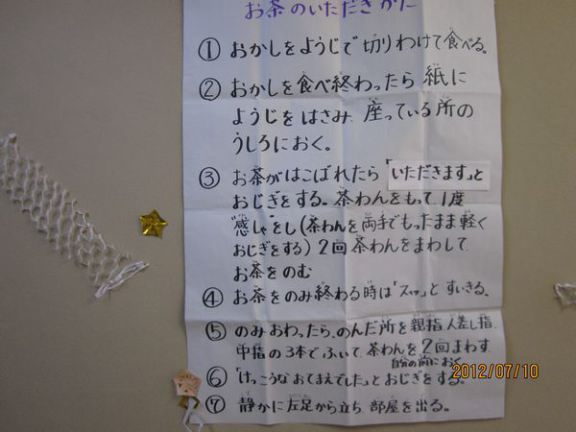 お茶のいただきかた
① おかしをようじで切りわけて食べる。
② おかしを食べ終わったら紙に
ようじをはさみ、座っている所の
うしろにおく。
③ お茶がはこばれたら「いただきます」と
おじぎをする。茶わんをもって、1度
感しゃをし(茶わんを両手でもったまま軽く
おじぎをする)2回茶わんをまわして
お茶をのむ
④ お茶をのみ終わる時は「スッ」とすいきる。
⑤ のみおわったら、のんだ所を親指、人差し指、
中指の3本でふいて、茶わんを2回まわす
自分の前におく
⑥「けっこうなおてまえでした」とおじぎをする。
2012/07/10
⑦ 静かに左足から立ち、部屋を出る。